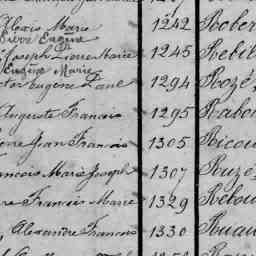 Alexis Marie 1242 Rober
Pierre Eugène
Joseph Pierre Marie 1245 Rebil
Eugène Marie
tor Eugène Paul 1294 Rozé,
Auguste Francis 1295 Rabo
erre Jean Francois 1305 Ricou
ancois Marie Joseph 1307 Ruzé,
re Francis Marie 1329 Rebou
, Alexandre Francois 1330 Ruau